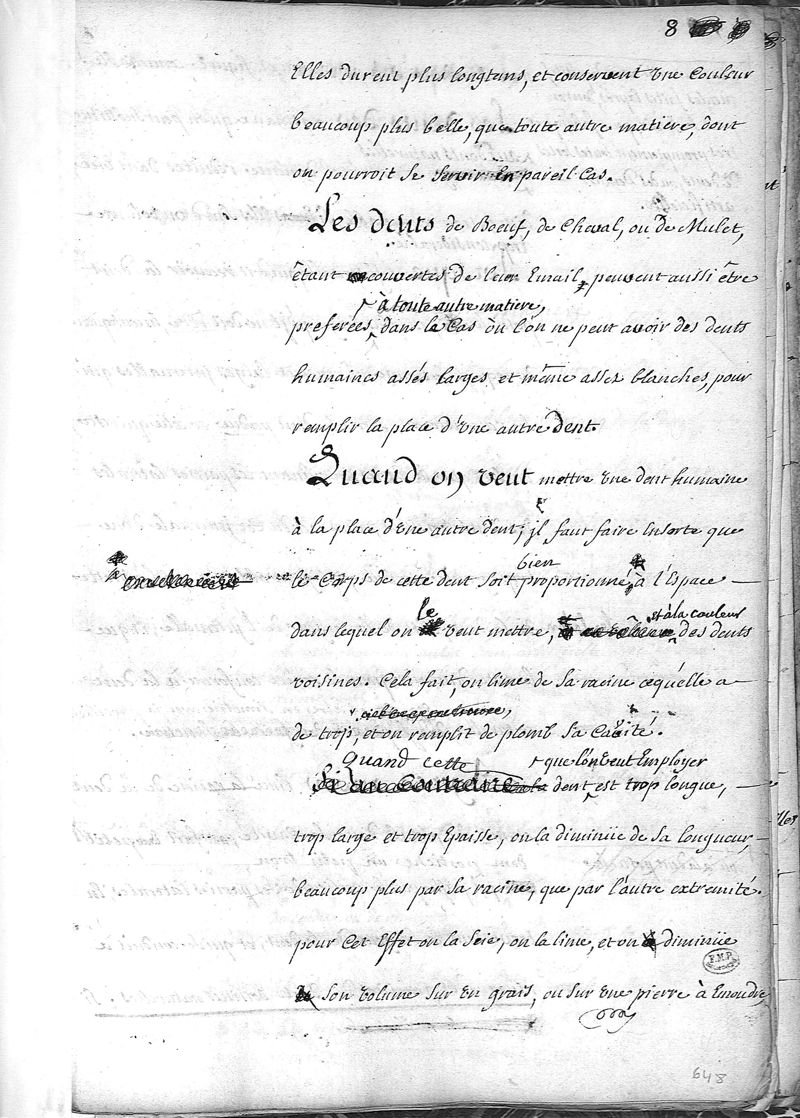 8
Elles durent plus longtans, et conservent une Couleur
beaucoup plus belle, que toute autre matiere, dont
on pourroit se servir en pareil Cas.
Les dents de Boeuf, de Cheval, ou de Mulet,
êtant couvertes de leur Email, peuvent aussi être
à toute autre matiere,
preferées, dans le Cas où l'on ne peut avoir des dents
humaines assés larges et même assez blanches, pour
remplir la place d'une autre Dent.
Quand on veut mettre une dent humaine
à la place d'une autre dent, il faut faire Ensorte que
bien
le Corps de cette dent soit proportionné, à l'Espace
le et à la couleur
dans lequel on veut mettre, des dents
voisines. Cela fait, on lime de sa racine ce qu'elle a
de trop, et on remplit de plomb sa Cavité.
Quand cette que l'on veut Employer
Si au Contraire la dent est trop longue,
trop large et trop Epaisse, on la diminüe de sa longueur,
beaucoup plus par sa racine, que par l'autre extremité.
pour Cet Effet on la Scie, on la lime, et on diminüe
son volume sur un grais, ou sur une pierre à Emoudre,
F.M.P.
648